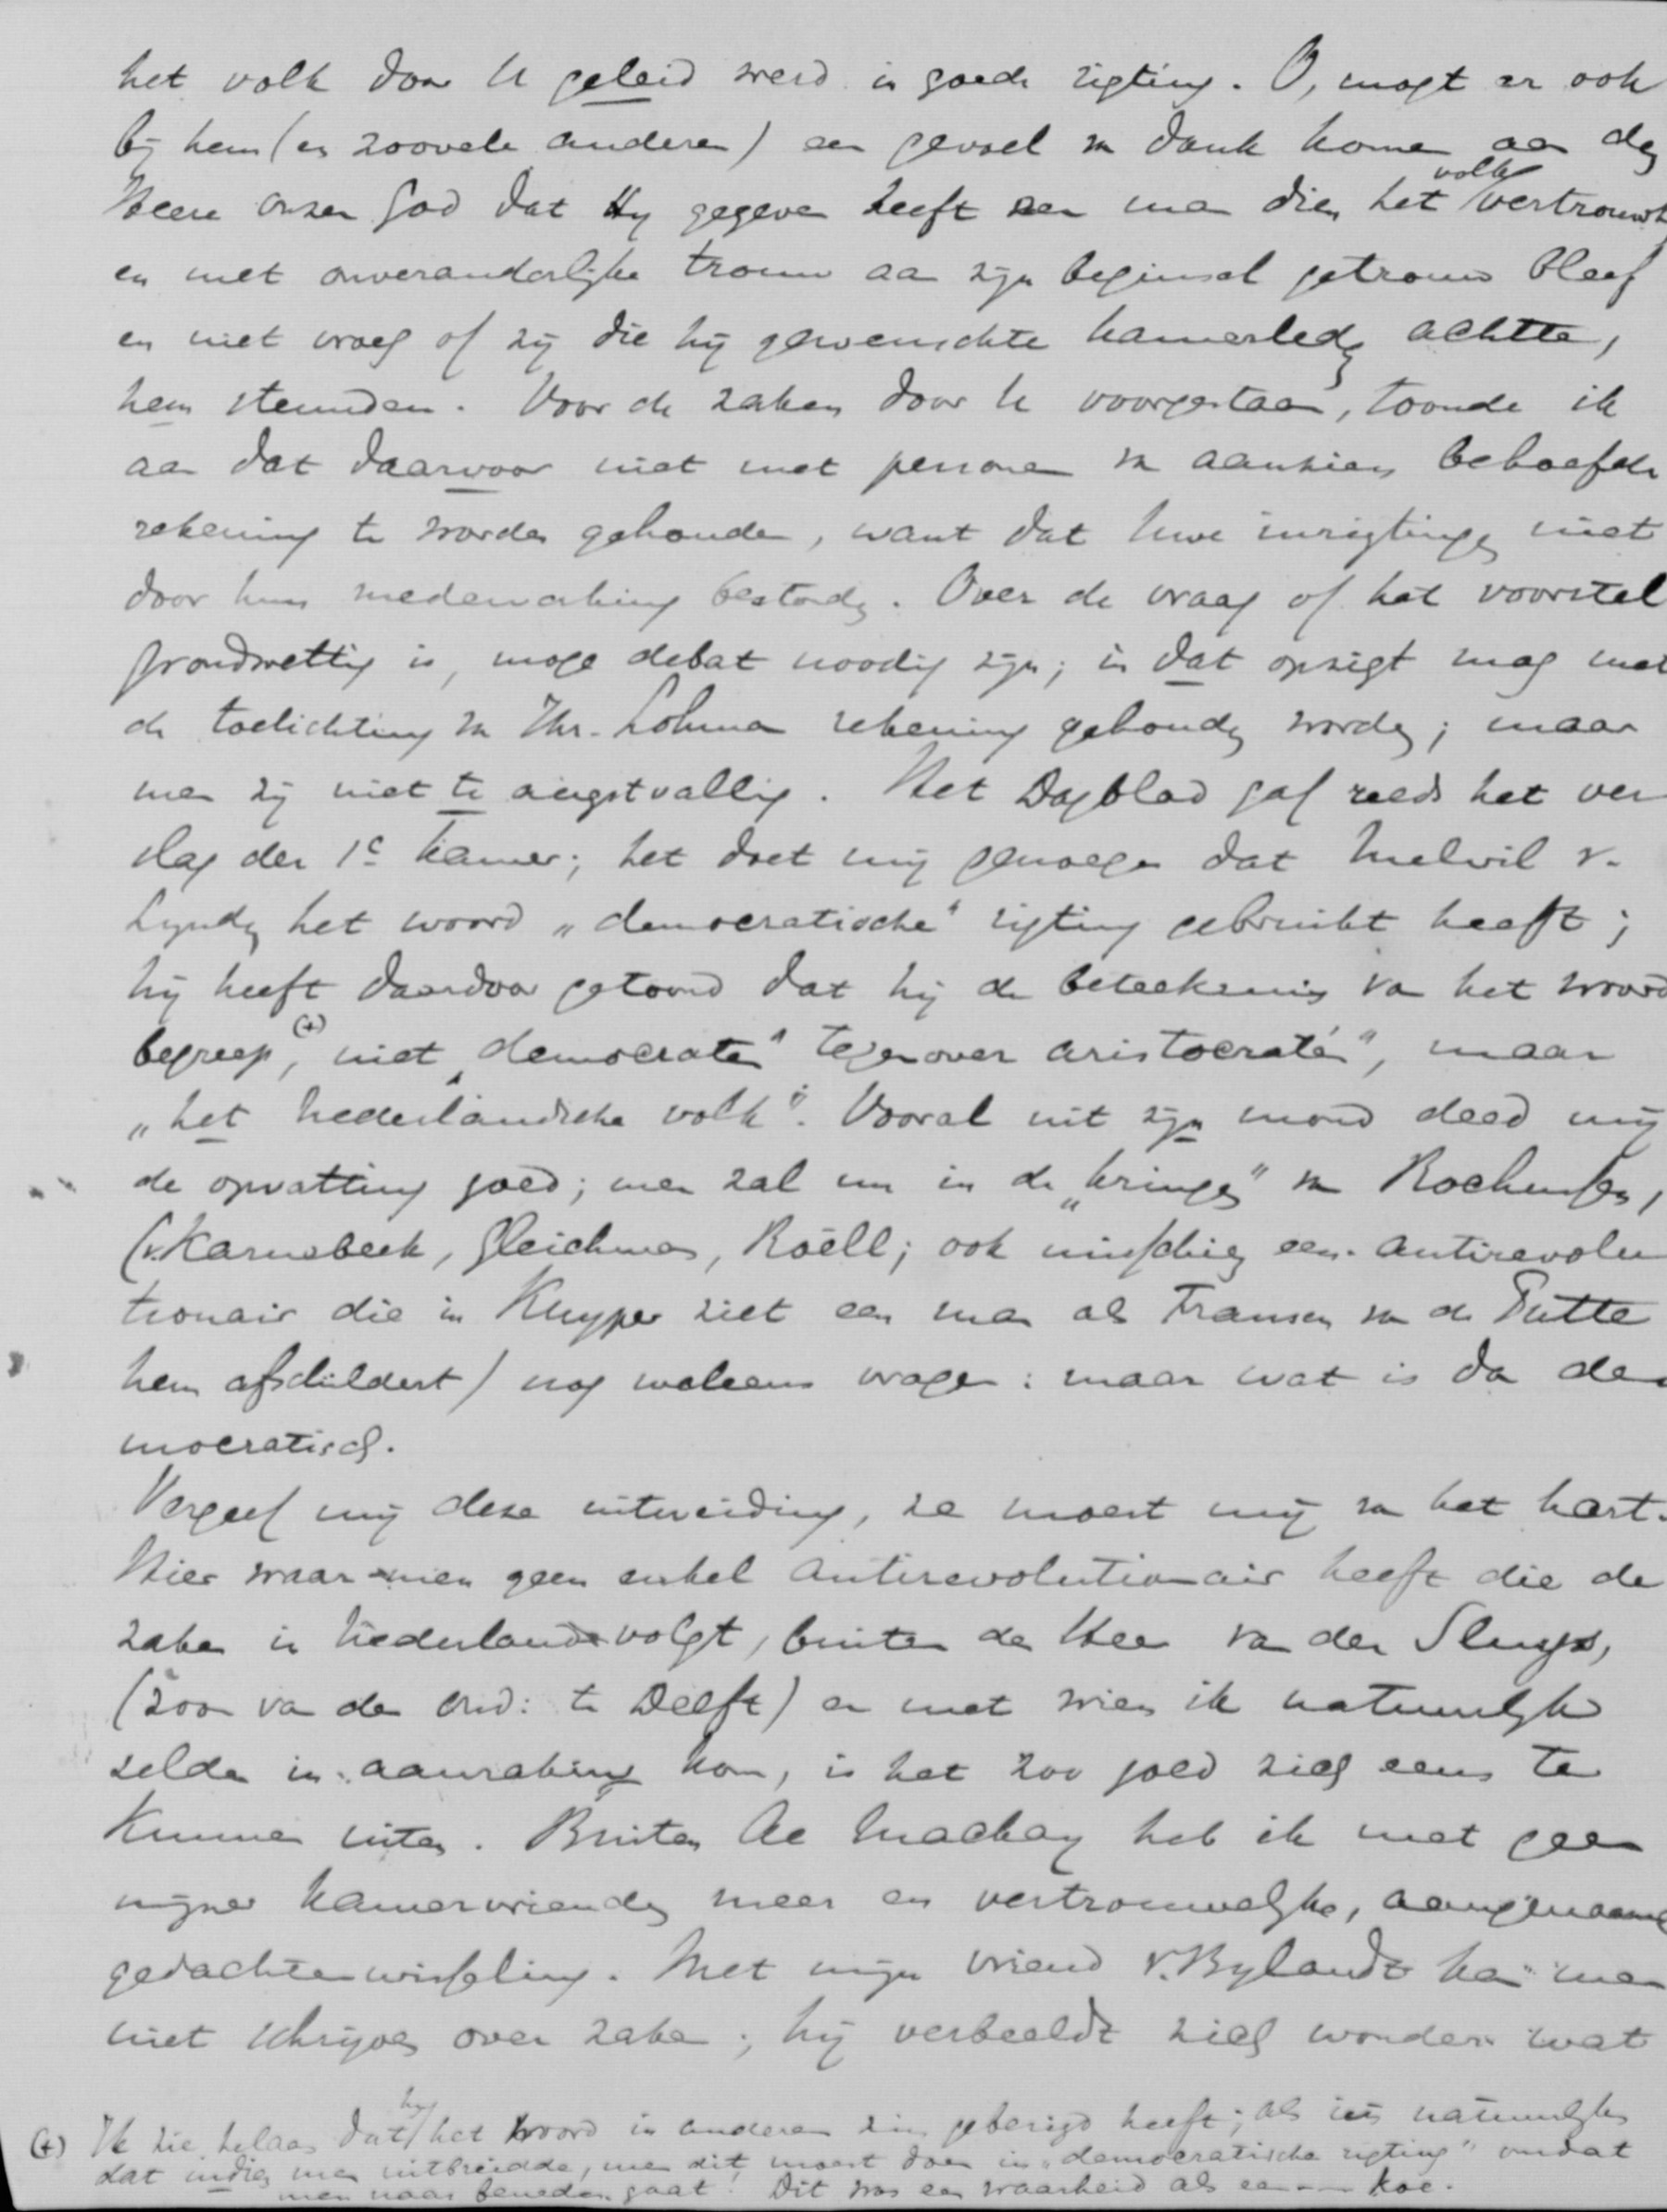 het volk door U geleid werd in goede rigting. O, mogt er ook
bij hem (en zoovele anderen) een gevoel van dank komen aan den
Heere onzen God dat Hij gegeven heeft een man dien het volk vertrouwt
en met onveranderlijke trouw aan zijn beginsel getrouw bleef
en niet vroeg of zij die hij gewenschte kamerleden achtte,
hem steunden. Voor de zaken door U voorgestaan, toonde ik
aan dat daarvoor niet met personen van aanzien behoefde
rekening te worden gehouden, want dat Uwe inrigtingen niet
door hun medewerking bestonden. Over de vraag of het voorstel
grondwettig is, moge debat noodig zijn; in dat opzigt mag met
de toelichting van Jhr. Lohman rekening gehouden worden; maar
men zij niet te angstvallig. Het Dagblad gaf reeds het ver
slag der 1e Kamer; het doet mij genoegen dat Melvil v.
Lynden het woord „democratische" rigting gebruikt heeft;
hij heeft daardoor getoond dat hij de beteekenis van het woord
begreep, (+) niet „democraten" tegenover aristocraten", maar
„het Nederlandsche volk". Vooral uit zijn mond deed mij
de opvatting goed; men zal nu in de „kringen" van Rochussen,
(v. Karnebeek, Gleichman, Roëll; ook misschien een antirevolu
tionair die in Kuyper ziet een man als Fransen van de Putte
hem afschildert) nog weleens vragen: maar wat is dan de
mocratisch.
Vergeef mij deze uitweiding, ze moest mij van het hart.
Hier waar men geen enkel antirevolutionair heeft die de
zaken in Nederland volgt, buiten den Heer van der Sluys,
(zoon van den Oud: te Delft) en met wien ik natuurlijk
zelden in aanraking kom, is het zoo goed zich eens te
kunnen uiten. Buiten Ae Mackay heb ik met geen
mijner kamervrienden meer en vertrouwelijke, aangename
gedachtenwisseling. Met mijn vriend v. Bylandt kan men
niet schrijven over zaken; hij verbeeldt zich wonder wat
(+) Ik zie helaas dat hij het woord in anderen zin gebezigd heeft; als iets natuurlijks
dat indien men uitbreidde, men dit moest doen in „democratische rigting" omdat
men naar beneden gaat! Dit was een waarheid als een — koe.